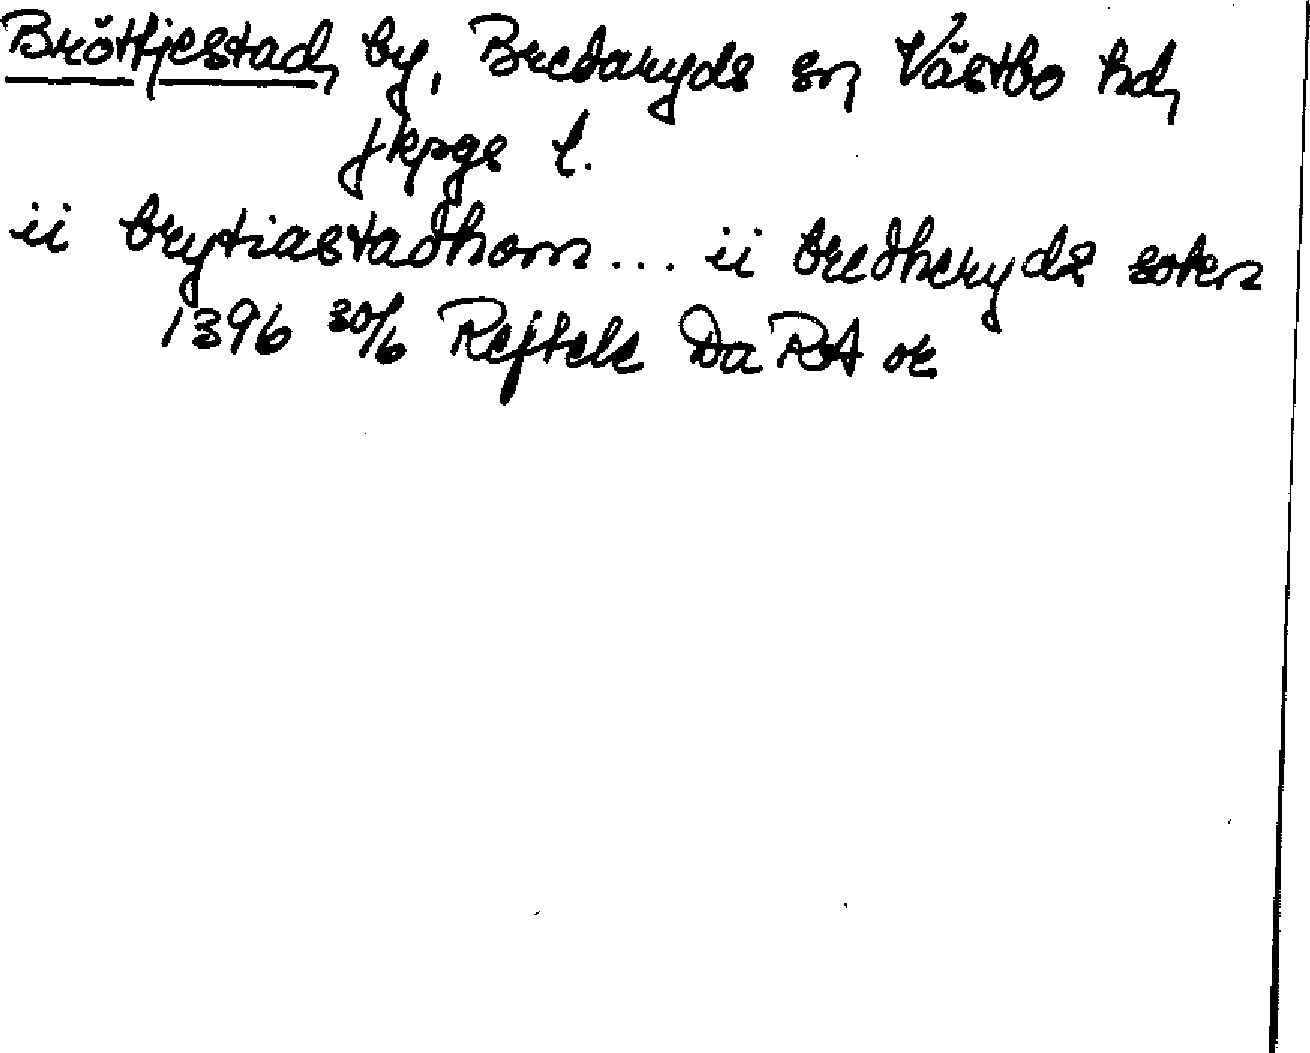 Bröttjestad, by, Bredaryds sn, Västbo hd,
Jkpgs l.
ii brytiastadhom ... ii bredheryds sokn
1396 30/6 Reftele Da RA or